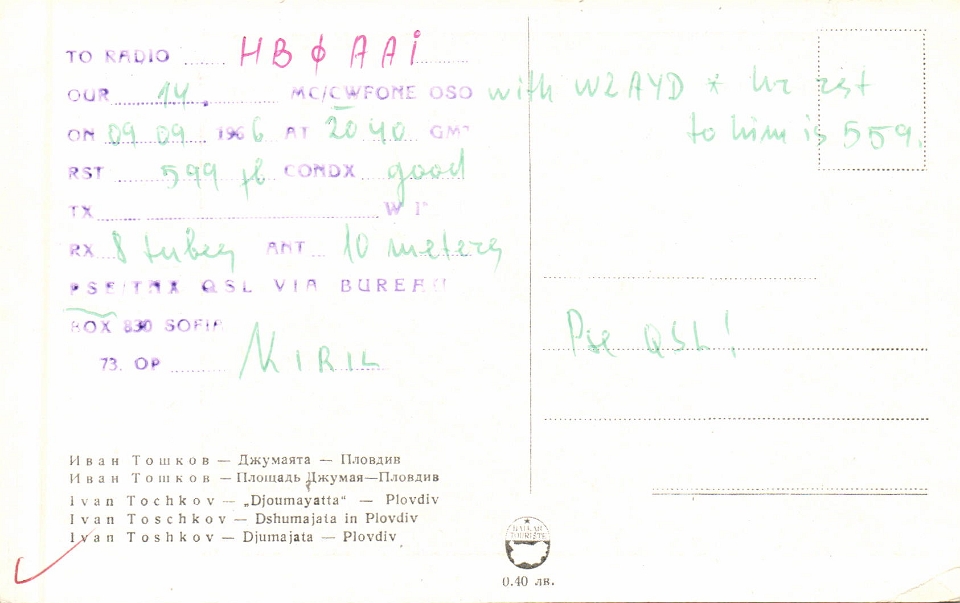 TO RADIO HBØAAI
OUR 14. MC/CWFONE QSO with W2AYD * hr rst
ON 09 09 1966 AT 2040 GMT to him is 559.
RST 599 fb CONDX good
TX W I
RX 8 tubes ANT 10 meters
PSE/TNX QSL VIA BUREAU
BOX 830 SOFIA
Pse QSL!
73. OP KIRIL
Иван Тошков — Джумаята — Пловдив
Иван Тошков — Площадь Джумая—Пловдив
Ivan Tochkov — „Djoumayatta“ — Plovdiv
Ivan Toschkov — Dshumajata in Plovdiv
Ivan Toshkov — Djumajata — Plovdiv
BALKAN
TOURISTE
0.40 лв.